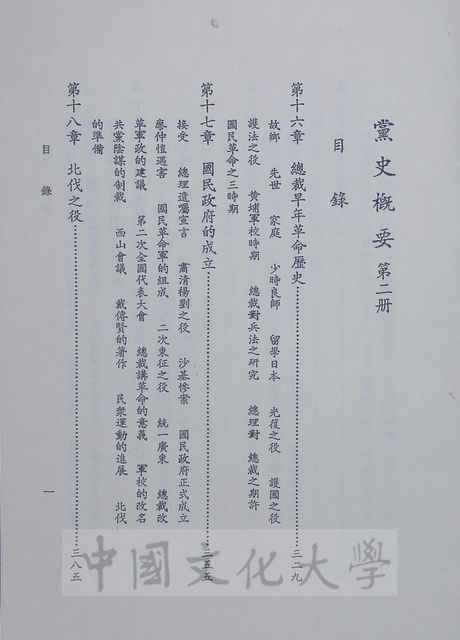 黨史概要 第二册
目錄
第十六章 總裁早年革命歷史…………三二九
故鄉 先世 家庭 少時良師 留學日本 光復之役 護國之役
護法之役 黃埔軍校時期 總裁對兵法之研究 總理對 總裁之期許
國民革命之三時期
第十七章 國民政府的成立…………三五五
接受 總理遺囑宣言 肅清楊劉之役 沙基慘案 國民政府正式成立
廖仲愷遇害 國民革命軍的組成 二次東征之役 統一廣東 總裁改
革軍政的建議 第二次全國代表大會 總裁講革命的意義 軍校的改名
共黨陰謀的制裁 西山會議 戴傳賢的著作 民衆運動的進展 北伐
的準備
第十八章 北伐之役…………三八五
目錄
一
中國文化大學